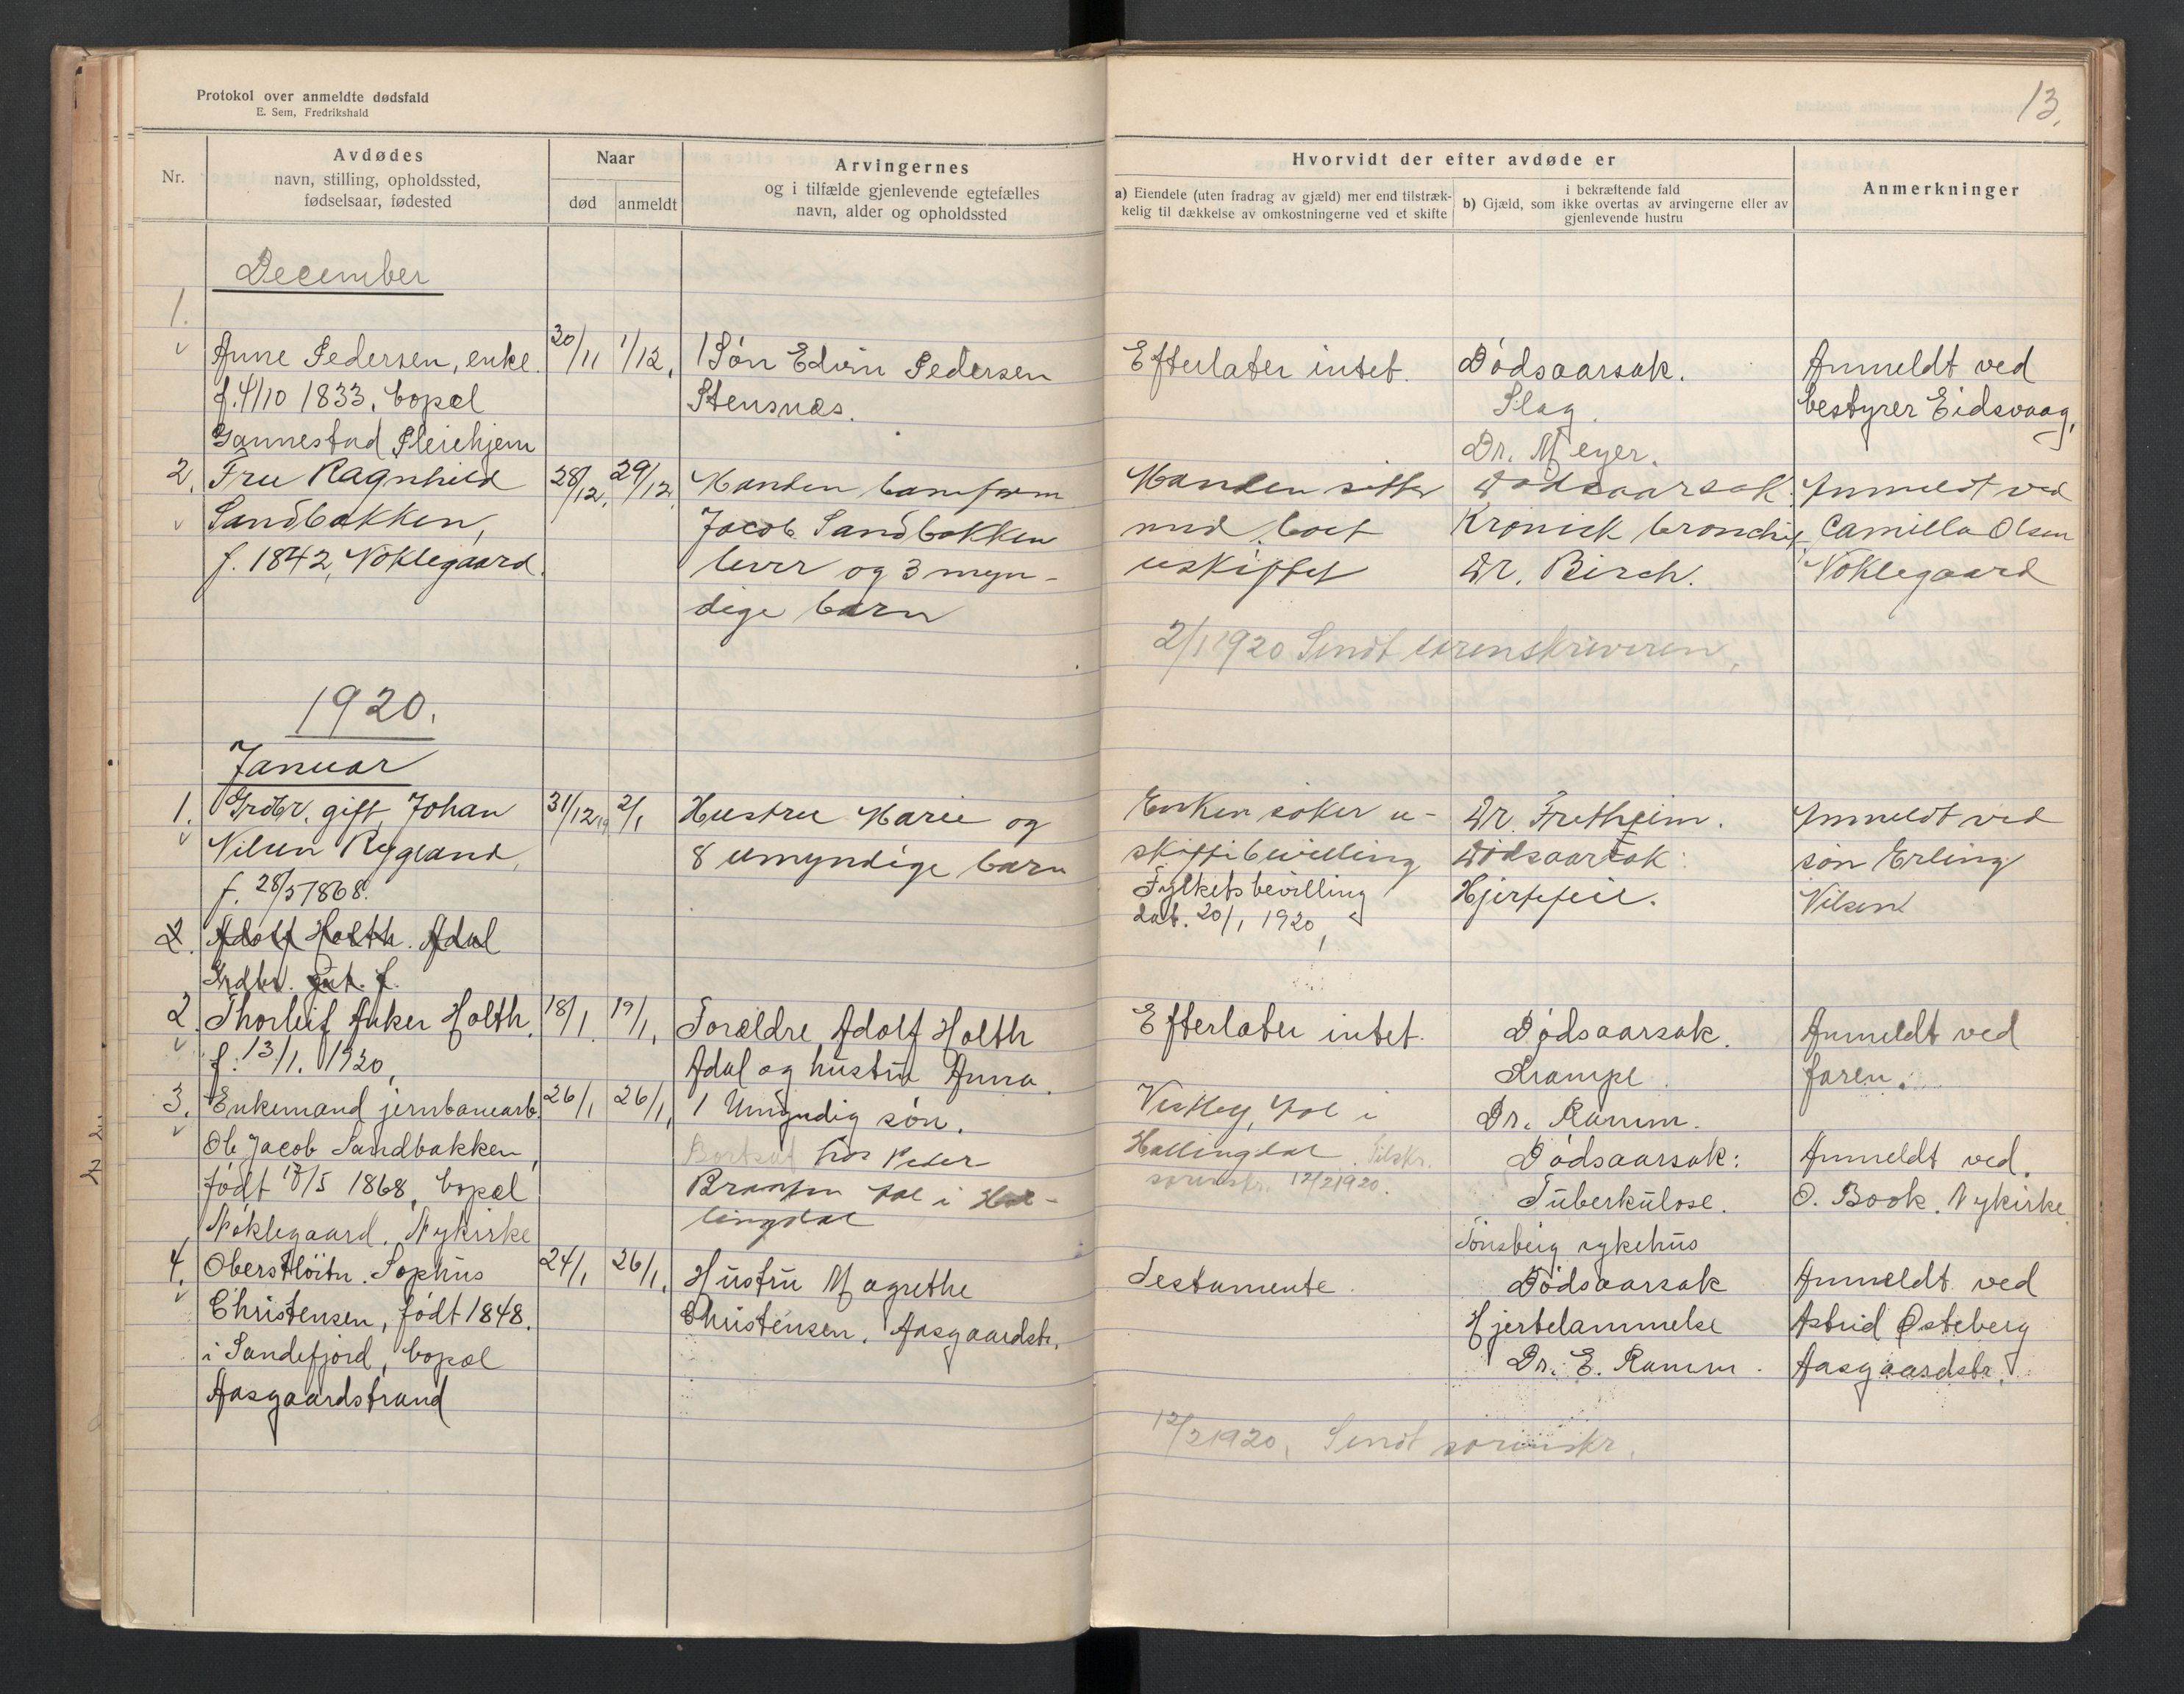 Protokol over anmeldte dødsfald
E. Sem, Fredrikshald
13.
Nr.
Avdødes
navn, stilling, opholdssted,
fødselsaar, fødested
Naar
død
anmeldt
Arvingernes
og i tilfælde gjenlevende egtefælles
navn, alder og opholdssted
Hvorvidt der efter avdøde er
a) Eiendele (uten fradrag av gjæld) mer end tilstræk-
kelig til dækkelse av omkostningerne ved et skifte
i bekræftende fald
b) Gjæld, som ikke overtas av arvingerne eller av
gjenlevende hustru
Anmerkninger
December
1.
Anne Pedersen, enke.
f. 4/10 1833, bopæl
Gannestad Pleiehjem
30/11
1/12.
1 Søn Edvin Pedersen
Stensnæs.
Efterlater intet.
Dødsaarsak.
Slag.
Dr. Meyer.
Anmeldt ved
bestyrer Eidsvaag,
2.
Fru Ragnhild
Sandbakken,
f. 1842, Nøklegaard.
28/12.
29/12.
Manden baneform
Jacob Sandbakken
lever og 3 myn-
dige barn
Manden sitter
med boet
uskiftet
Dødsaarsak:
Kronisk bronchit
Dr. Birch.
Anmeldt ved
Camilla Olsen
Nøklegaard
2/1 1920 Sendt sorenskriveren,
1920.
Januar
1.
Grdbr. gift Johan
Nilsen Rygland,
f. 28/5 1868.
31/12 19
2/1
Hustru Marie og
8 umyndige barn
Enken søker u-
skiftebevilling
Fylketsbevilling
dat. 20/1 1920,
Dr. Fretheim.
Dødsaarsak:
Hjertefeil.
Anmeldt ved
søn Erling
Nilsen
2.
Adolf Holth. Adal
Grdbr. f.
2
Thorleif Anker Holth.
f. 13/1. 1920,
18/1.
19/1.
Forældre Adolf Holth
Adal og hustru Anna.
Efterlater intet.
Dødsaarsak.
Krampe.
Dr. Ramm.
Anmeldt ved
faren.
3.
Enkemand jernbanearb.
Ole Jacob Sandbakken,
født 17/5 1868, bopæl
Nøklegaard. Nykirke
26/1
26/1,
1 Umyndig søn.
Bortsat hos Peder
Aal i Hal-
lingdal
Aal i
Hallingdal. Tilskr.
sorenskr. 12/2 1920.
Dødsaarsak:
Tuberkulose.
Tønsberg sykehus
Anmeldt ved.
O. Book. Nykirke
4.
Oberstløitn. Sophus
Christensen, født 1848.
i Sandefjord, bopæl
Aasgaardstrand
24/1
26/1.
Hustru Magrethe
Christensen. Aasgaardstr.
Testamente.
Dødsaarsak
Hjertelammelse
Dr. E. Ramm.
Anmeldt ved
Astrid Østeberg
Aasgaardstr.
12/2 1920. Sendt sorenskr.